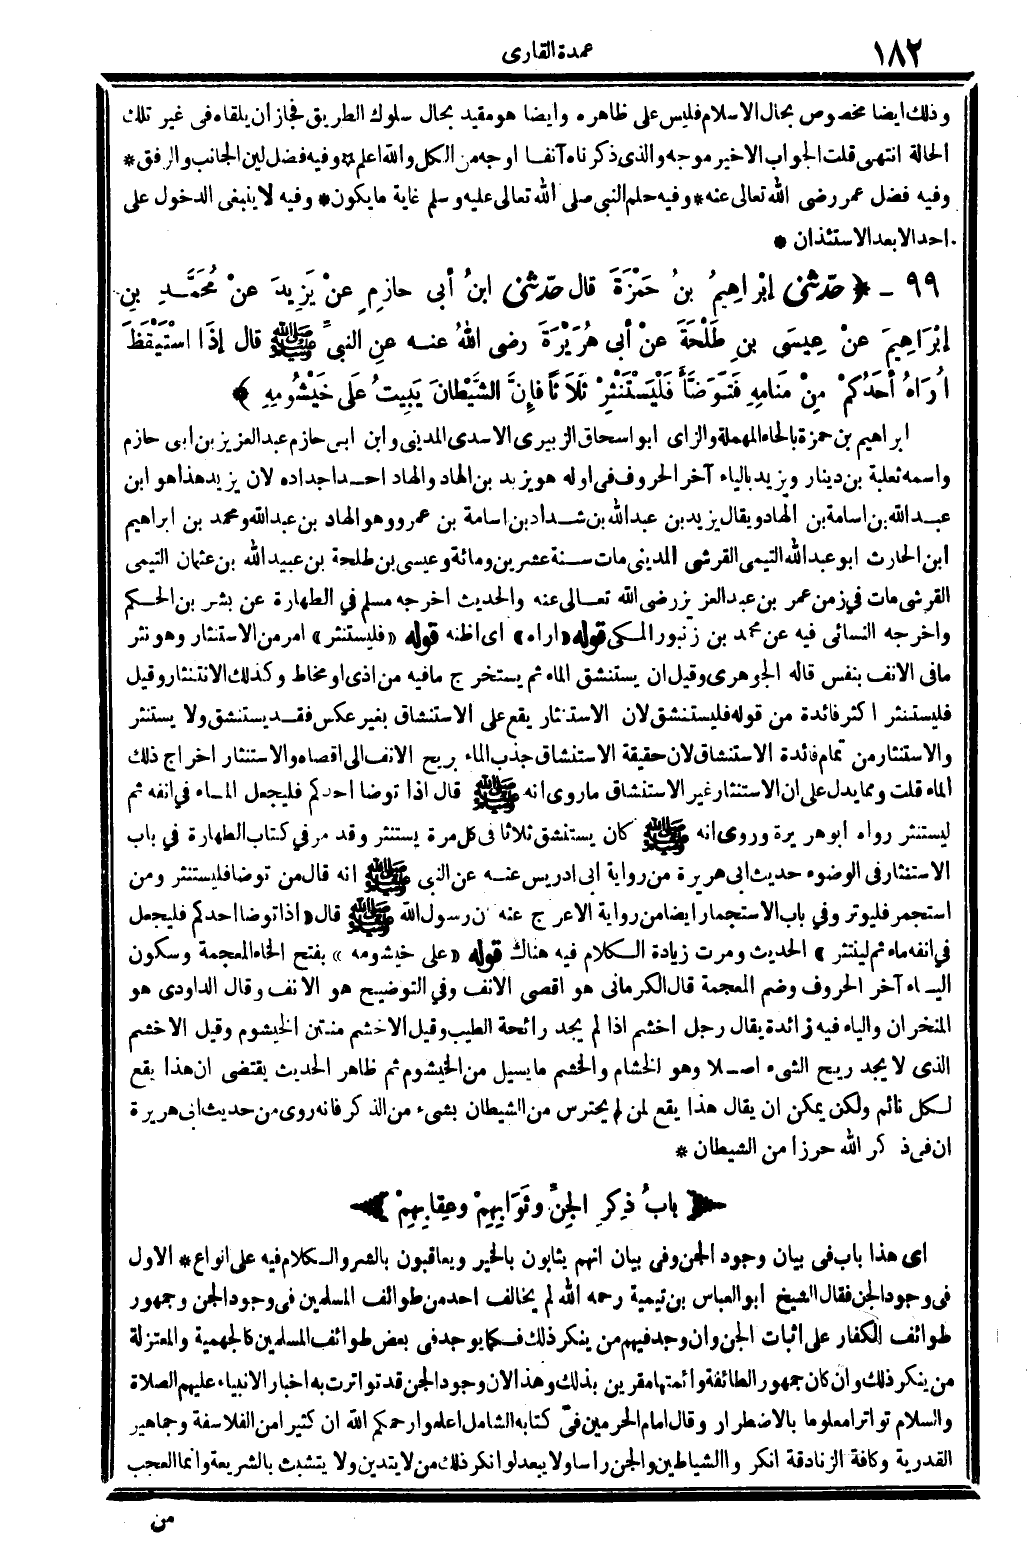 ١٨٢
عمدة القارى
وذلك ايضا مخصوص بحال الاسلام فليس على ظاهره وايضا هو مقيد بحال سلوك الطريق فجاز ان يلقاه فى غير تلك
الحالة انتهى قلت الجواب الاخير موجه والذى ذكرناه آنفا اوجه من الكل والله اعلم * وفيه فضل لين الجانب والرفق *
وفيه فضل عمر رضى الله تعالى عنه * وفيه حلم النبي صلى الله تعالى عليه وسلم غاية ما يكون * وفيه لا ينبغى الدخول على
احد الا بعد الاستئذان *
٩٩ - ﴿ حدّثنى إبْرَاهِيمُ بنُ حَمْزَةَ قال حدّثنى ابنُ أبى حازِمٍ عنْ يَزِيدَ عنْ مُحَمَّدِ بنِ
إبْرَاهِيمَ عنْ عِيسَى بنِ طَلْحَةَ عنْ أبى هُرَيْرَةَ رضى اللهُ عنه عنِ النبىِّ ﷺ قال إذَا اسْتَيْقَظَ
اُرَاهُ أحَدُكمْ مِنْ مَنَامِهِ فَتَوَضَّأَ فَلْيَسْتَنْثِرْ ثَلاَثاً فإنَّ الشَّيْطَانَ يَبِيتُ عَلَى خَيْشُومِهِ ﴾
ابراهيم بن حمزة بالحاء المهملة والزاى ابو اسحاق الزبيرى الاسدى المدينى وابن ابى حازم عبد العزيز بن ابى حازم
واسمه ثعلبة بن دينار ويزيد بالياء آخر الحروف فى اوله هو يزيد بن الهاد والهاد احد اجداده لان يزيد هذا هو ابن
عبد الله بن اسامة بن الهاد ويقال يزيد بن عبد الله بن شداد بن اسامة بن عمرو وهو الهاد بن عبد الله ومحمد بن ابراهيم
ابن الحارث ابو عبد الله التيمى القرشى المدينى مات سنة عشرين ومائة وعيسى بن طلحة بن عبيد الله بن عثمان التيمى
القرشى مات في زمن عمر بن عبد العزيز رضى الله تعالى عنه والحديث اخرجه مسلم في الطهارة عن بشر بن الحكم
واخرجه النسائى فيه عن محمد بن زنبور المكى قوله «اراه» اى اظنه قوله «فليستنثر» امر من الاستنثار وهو نثر
مافى الانف بنفس قاله الجوهرى وقيل ان يستنشق الماء ثم يستخرج مافيه من اذى او مخاط وكذلك الانتثار وقيل
فليستنثر اكثر فائدة من قوله فليستنشق لان الاستنثار يقع على الاستنشاق بغير عكس فقد يستنشق ولا يستنثر
والاستنثار من تمام فائدة الاستنشاق لان حقيقة الاستنشاق جذب الماء بريح الانف الى اقصاه والاستنثار اخراج ذلك
الماء قلت ومما يدل على ان الاستنثار غير الاستنشاق ماروى انه ﷺ قال اذا توضا احدكم فليجعل الماء في انفه ثم
ليستنثر رواه ابو هريرة وروى انه ﷺ كان يستنشق ثلاثا فى كل مرة يستنثر وقد مر في كتاب الطهارة في باب
الاستنثار فى الوضوء حديث ابى هريرة من رواية ابى ادريس عنه عن النبى ﷺ انه قال من توضا فليستنثر ومن
استجمر فليوتر وفي باب الاستجمار ايضا من رواية الاعرج عنه ان رسول الله ﷺ قال «اذا توضا احدكم فليجعل
في انفه ماء ثم لينتثر» الحديث ومرت زيادة الكلام فيه هناك قوله «على خيشومه» بفتح الخاء المعجمة وسكون
الياء آخر الحروف وضم المعجمة قال الكرمانى هو اقصى الانف وفي التوضيح هو الانف وقال الداودى هو
المنخران والياء فيه زائدة يقال رجل اخشم اذا لم يجد رائحة الطيب وقيل الاخشم منتن الخيشوم وقيل الاخشم
الذى لا يجد ريح الشىء اصلا وهو الخشام والخشم مايسيل من الخيشوم ثم ظاهر الحديث يقتضى ان هذا يقع
لكل نائم ولكن يمكن ان يقال هذا يقع لمن لم يحترس من الشيطان بشىء من الذكر فانه روى من حديث ابى هريرة
ان فى ذكر الله حرزا من الشيطان *
بابُ ذِكرِ الجِنِّ وثَوَابِهِمْ وعِقابِهِمْ
اى هذا باب فى بيان وجود الجن وفى بيان انهم يثابون بالخير ويعاقبون بالشر والكلام فيه على انواع * الاول
فى وجود الجن فقال الشيخ ابو العباس بن تيمية رحمه الله لم يخالف احد من طوائف المسلمين فى وجود الجن وجمهور
طوائف الكفار على اثبات الجن وان وجد فيهم من ينكر ذلك فكما يوجد فى بعض طوائف المسلمين كالجهمية والمعتزلة
من ينكر ذلك وان كان جمهور الطائفة وائمتها مقرين بذلك وهذا لان وجود الجن قد تواترت به اخبار الانبياء عليهم الصلاة
والسلام تواترا معلوما بالاضطرار وقال امام الحرمين فى كتابه الشامل اعلموا رحمكم الله ان كثيرا من الفلاسفة وجماهير
القدرية وكافة الزنادقة انكروا الشياطين والجن راسا ولا يبعد لو انكر ذلك من لا يتدين ولا يتشبث بالشريعة وانما العجب
من